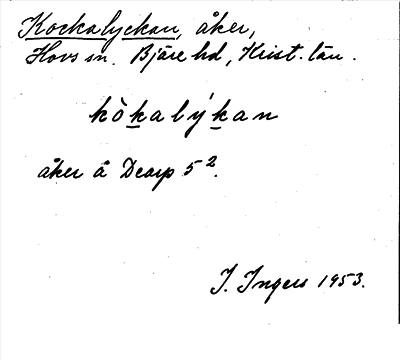 Kockalyckan, åker,
Hovs sn. Bjäre hd, Krist. län.
kòkalýkan
åker å Dearp 5².
I. Ingers 1953.